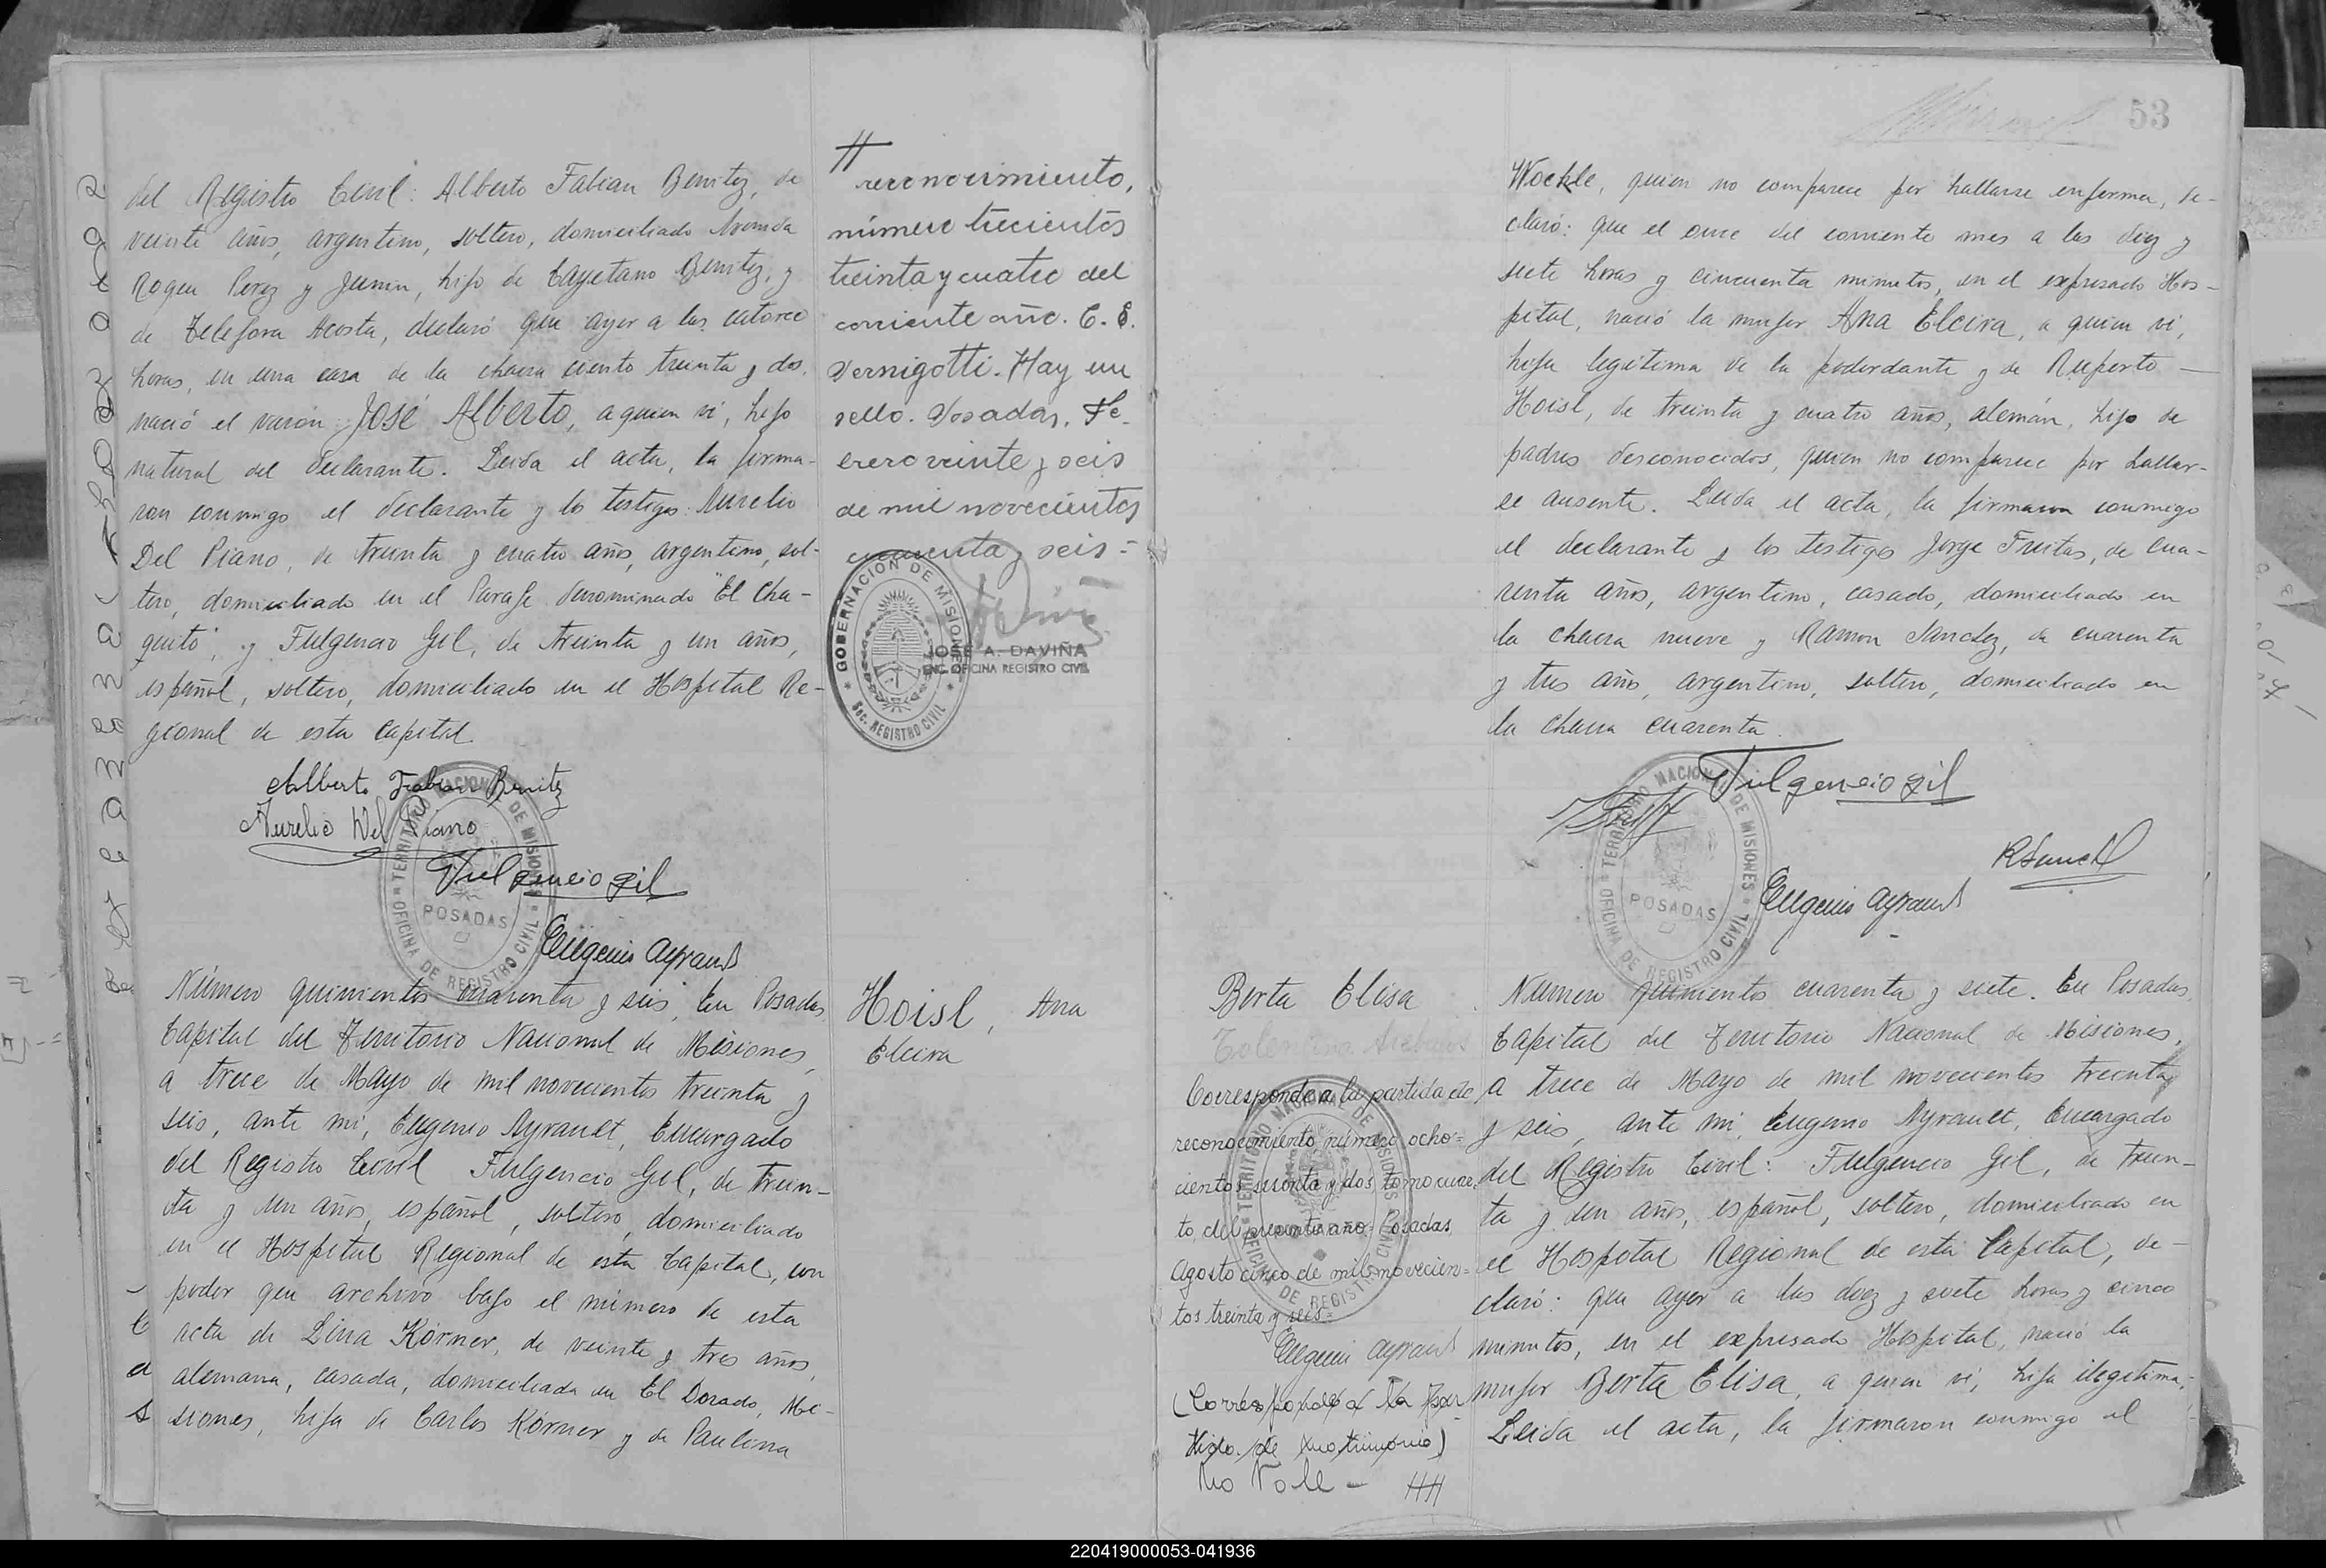 del Registro Civil: Alberto Fabian Benitez, de
veinte años, argentino, soltero, domiciliado Avenida
Roque Perez y Junin, hijo de Cayetano Benitez, y
de Telefora Acosta, declaró que ayer a las catorce
horas, en una casa de la chacra ciento treinta y dos,
nació el varón José Alberto, a quien ví, hijo
natural del declarante. Leída el acta, la firma-
ron conmigo el declarante y los testigos: Aurelio
Del Piano, de treinta y cuatro años, argentino, sol-
tero, domiciliado en el Paraje denominado "El Cha-
quito", y Fulgencio Gil, de treinta y un años,
español, soltero, domiciliado en el Hospital Re-
gional de esta Capital.
Alberto Fabian Benitez
Aurelio Del Piano
Fulgencio Gil
Eugenio Ayrault
TERRITORIO NACIONAL DE MISIONES
OFICINA DE REGISTRO CIVIL
POSADAS
#
reconocimiento,
número trecientos
treinta y cuatro del
corriente año. C. E.
Vernigotti. Hay un
sello. Posadas, Fe-
brero veinte y seis
de mil novecientos
cincuenta y seis=
GOBERNACION DE MISIONES
Sec. REGISTRO CIVIL
JOSE A. DAVIÑA
ENC. OFICINA REGISTRO CIVIL
Número quinientos cuarenta y seis. En Posadas
Capital del Territorio Nacional de Misiones,
a trece de Mayo de mil novecientos treinta y
seis, ante mí, Eugenio Ayrault, Encargado
del Registro Civil Fulgencio Gil, de trein-
ta y un años, español, soltero, domiciliado
en el Hospital Regional de esta Capital, con
poder que archivo bajo el número de esta
acta de Lina Körner, de veinte y tres años,
alemana, casada, domiciliada en El Dorado, Mi-
siones, hija de Carlos Körner y de Paulina
Hoisl, Ana
Elcira
53
Wockle, quien no comparece por hallarse enferma, de-
claró: que el once del corriente mes a las diez y
siete horas y cincuenta minutos, en el expresado Hos-
pital, nació la mujer Ana Elcira, a quien ví,
hija legítima de la poderdante y de Ruperto
Hoisl, de treinta y cuatro años, alemán, hijo de
padres desconocidos, quien no comparece por hallar-
se ausente. Leída el acta, la firmaron conmigo
el declarante y los testigos Jorge Freitas, de cua-
renta años, argentino, casado, domiciliado en
la chacra nueve y Ramon Sanchez, de cuarenta
y tres años, argentino, soltero, domiciliado en
la chacra cuarenta.
Fulgencio Gil
Eugenio Ayrault
TERRITORIO NACIONAL DE MISIONES
OFICINA DE REGISTRO CIVIL
POSADAS
Berta Elisa
Corresponde a la partida de
reconocimiento número ocho=
cientos
y dos tomo cuar
to, del presente año. Posadas,
Agosto cinco de mil novecien=
tos treinta y seis=
Eugenio Ayrault
(Corresponde a la par
tida de matrimonio)
No Vale -
Número quinientos cuarenta y siete. En Posadas,
Capital del Territorio Nacional de Misiones,
a trece de Mayo de mil novecientos treinta
y seis, ante mí, Eugenio Ayrault, Encargado
del Registro Civil: Fulgencio Gil, de trein-
ta y un años, español, soltero, domiciliado en
el Hospital Regional de esta Capital, de-
claró: que ayer a las diez y siete horas y cinco
minutos, en el expresado Hospital, nació la
mujer Berta Elisa, a quien ví, hija ilegítima.
Leída el acta, la firmaron conmigo el
220419000053-041936